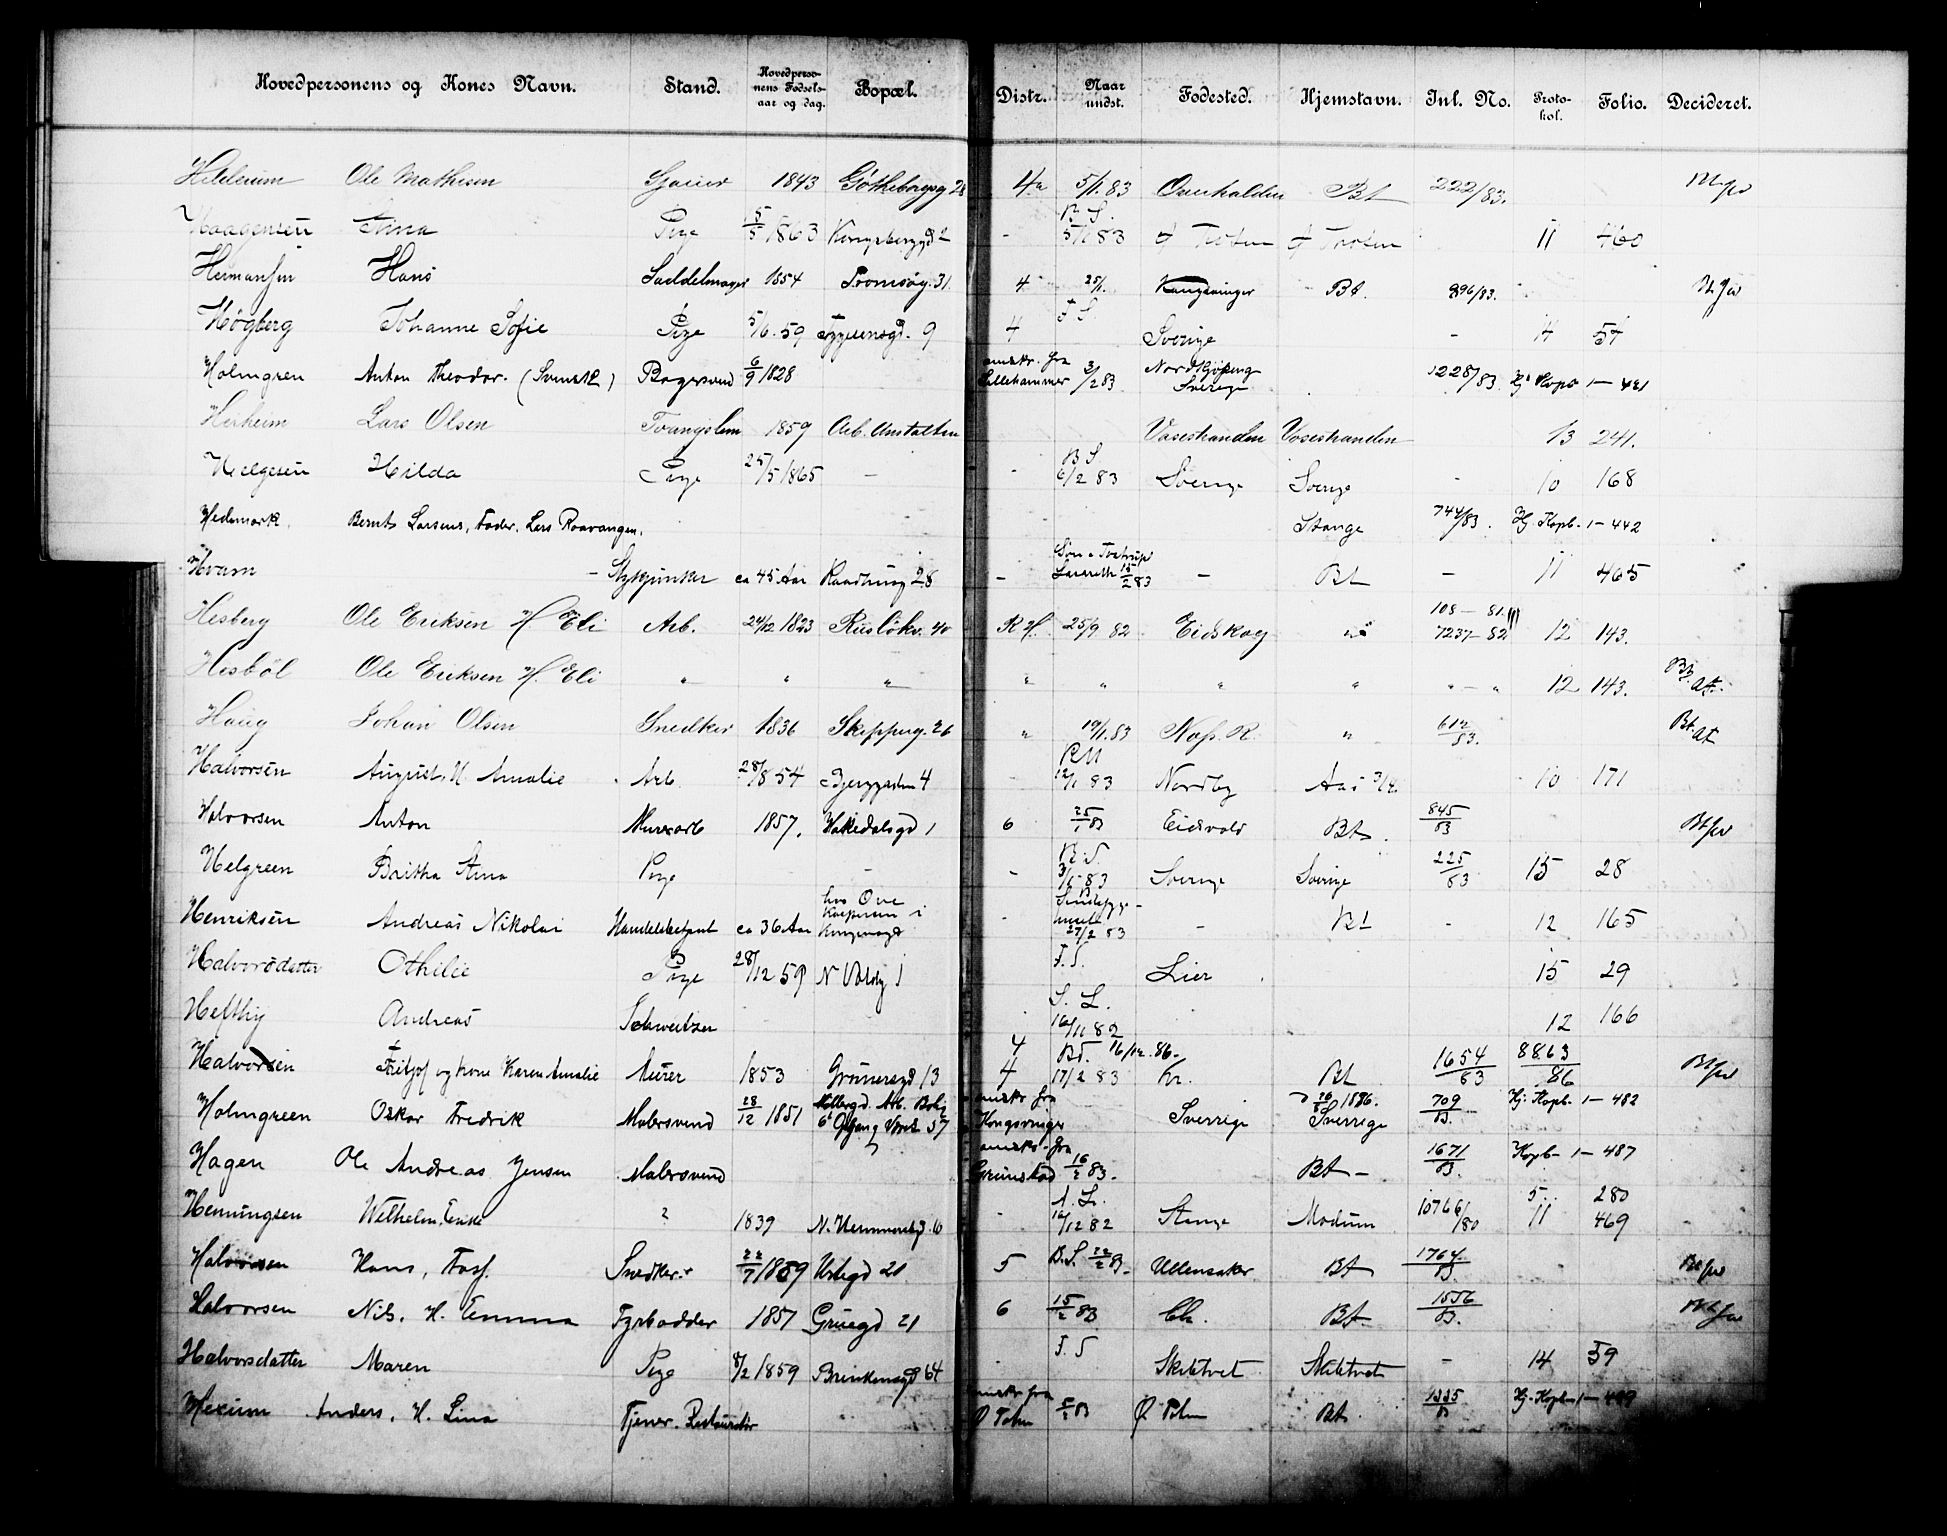 Hovedpersonens og Kones Navn. Stand. Hovedpersonens Fødselsaar og dag. Bopæl. Distr. Naar undst. Fødested. Hjemstavn. Inl. No. Protokol. Folio. Decideret.
Ole Mathisen 1843 Gøtheborgsg 28 4a 5/1.83 Overhalden Bt 222/83.
Haagensen Stina Pige 15/5 1863 Kongsbergsgd 2 - B S. 5/1 83 Ø Toten Ø Toten 11 460
Hermansen Hans Saddelmager 1854 Tromsøg. 31 4 25/1. Kongsvinger Bt. 896/83.
Høgberg Johanne Sofie Pige 5/6.59 9 4 F S. Sverige - 14 57
Holmgren Anton Theodor. (Svensk) Bagersvend 6/9 1828 anskr. fra Lillehammer 3/2 83 Nordkjøping Sverige 1228/83. Hj. Kopb 1-421
Lars Olsen Tvangslem 1859 Arb. Anstalten Vosestranden Vosestranden 13 241.
Helgesen Hilda Pige 25/5 1865 - - B S 6/2 83 Sverige Sverige - 10 168
Hedemark. Bernt Larsens, Fader. Lars Raavangen. Stange 744/83. Hj. Kopb. 1-442
Hvam - Stykjunker ca 45 Aar Raadhusg 28 - Lazareth 15/2 83 - Bt - 11 465
Hesberg Ole Eriksen H Eli Arb. 24/12 1823 Rusløkv. 40 R H. 25/9 82 Eidskog 108-81 7237-82 12 143.
Hesbøl Ole Eriksen H. Eli " " " " " " " " - " 12 143. Bt. at.
Haug Johan Olsen Snedker 1836 Skipperg. 26 " 19/1.83 Næs. R. " 612/83. Bt. at
Halvorsen August, H. Amalie Arb. 28/8 54 Bjerggaden 4 RM 12/1 83 Nordby Aas 10 171
Halvorsen Anton Murarb 1857. Hakedalsgd 1 6 25/1 83 Eidsvold Bt 845/83
Helgreen Britha Stina Pige - - - 3/1-83 Sverige Sverige 225/83 15 28
Henriksen Andreas Nikolai Handelsbetjent ca 36 Aar hos Ove i - 27/2 83 - Bt - 12 165
Halvorsdatter Othilie Pige 28/12 59 1 F. S. Lier 15 29
Heftby Andreas Schweitzer - - S. L. 16/11 82 12 166
Halvorsen Fritjof og kone Karen Amalie Murer 1853 Grünersgd 13 4 4 BS. 16/12.86. 17/2 83 Kr. Bt 1654/83 8863/86
Holmgreen Oskar Fredrik Malersvend 28/12 1851 Møllergd. Arb. Bolig 6t Opgang 37 anskr fra Kongsvinger Sverrige Sverrige 709/83. Hj. Kopb. 1-482
Hagen Ole Andreas Jensen Malersvend anskr. fra Grimstad 16/2 83. Bt - 1671/83. Kopb 1-487
Henningsen Wilhelm, Enke 2 1839 - A. L. 16/12 82 Stange Modum 10766/80 5. 280 11 469
Halvorsen Hans, Snedker. 22/7 1859 Urtegd 20 5 B.S. 22/2 83 Ullensaker Bt 1764/83.
Halvorsen Nils. H. Emma Fyrbødder 1857 Gruegd 21 6 15/2 83 Ch. Bt 1556/83.
Halvorsdatter Maren Pige 8/2 1859 Brinkensgd 64 . F. S Skibtvet Skibtvet - 14 59
Anders, H. Lina Tjener. Restauratør anskr fra Ø Toten Ø Toten Bt 1335/83 Hj. Kopb 1-499